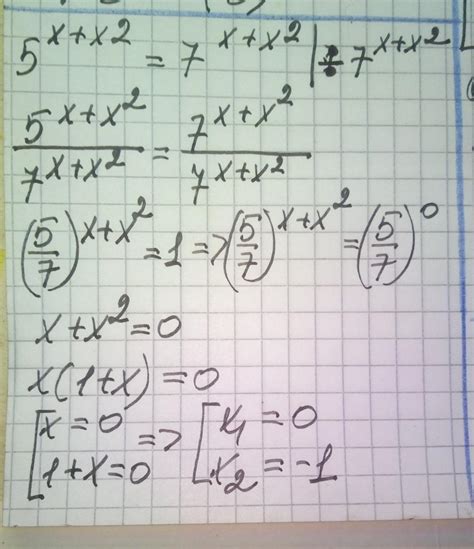 5^(x+x2) = 7^(x+x2) | ÷ 7^(x+x2)
5^(x+x2) / 7^(x+x2) = 7^(x+x2) / 7^(x+x2)
(5/7)^(x+x2) = 1 => (5/7)^(x+x2) = (5/7)^0
x+x² = 0
x(1+x) = 0
[x = 0 => [x₁ = 0
1+x=0 x₂ = -1